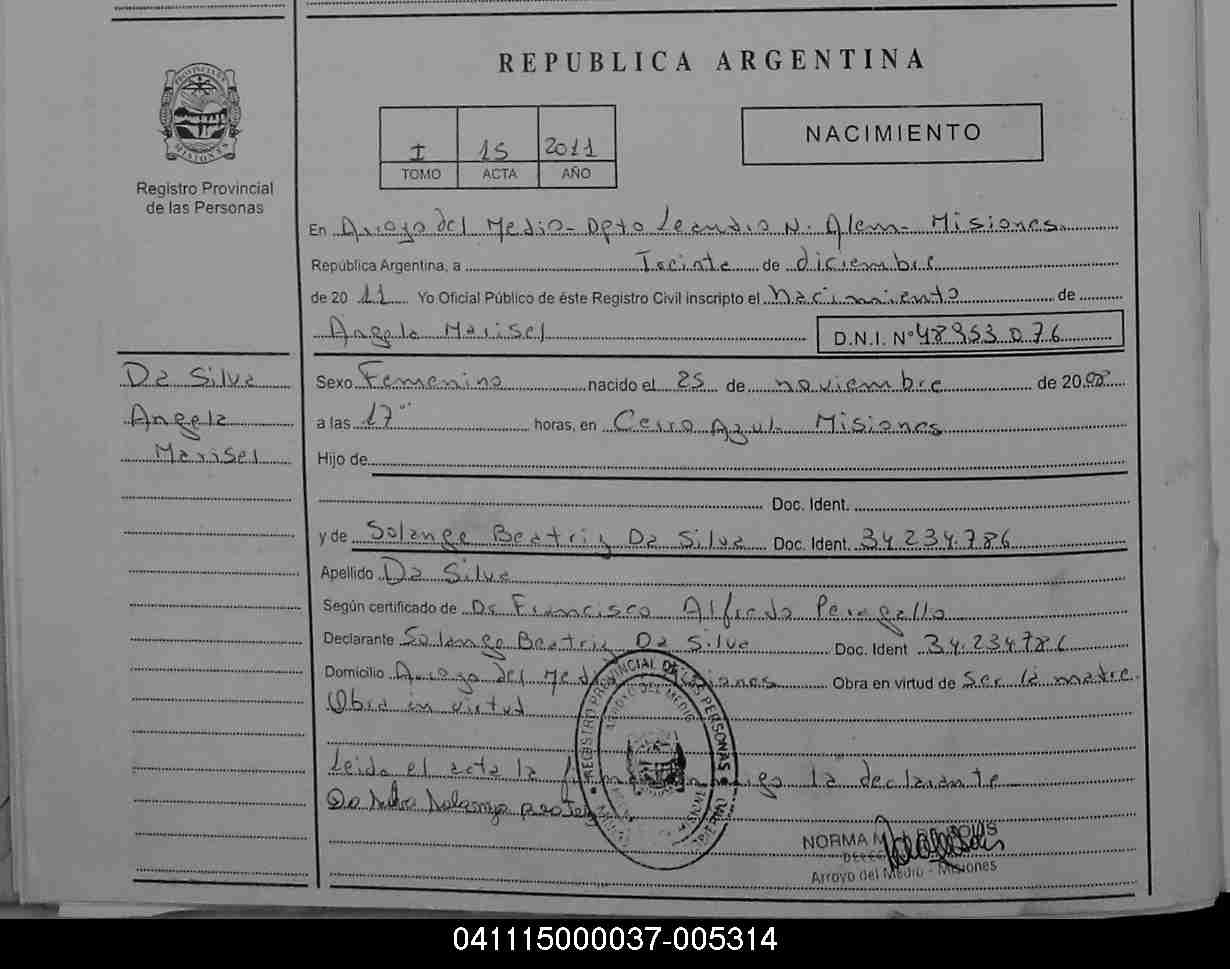 REPUBLICA ARGENTINA
PROVINCIA DE MISIONES
Registro Provincial
de las Personas
I 15 2011
TOMO ACTA AÑO
NACIMIENTO
En Arroyo del Medio - Dpto Leandro N. Alem - Misiones
República Argentina, a Treinta de diciembre
de 20 11 Yo Oficial Público de éste Registro Civil inscripto el Nacimiento de
Angela Marisel D.N.I. N° 48.953.076
Da Silva
Angela
Marisel
Sexo Femenino nacido el 25 de noviembre de 2008
a las 17 horas, en Cerro Azul Misiones
Hijo de
Doc. Ident.
y de Solange Beatriz Da Silva Doc. Ident. 34.234.786
Apellido Da Silva
Según certificado de Dr Francisco Alfredo Peragallo
Declarante Solange Beatriz Da Silva Doc. Ident 34.234.786
Domicilio Arroyo del Medio Misiones Obra en virtud de Ser la madre
Obra en virtud
Leida el acta la firma conmigo la declarante
REGISTRO PROVINCIAL DE LAS PERSONAS
ARROYO DEL MEDIO
NORMA M.
Arroyo del Medio - Misiones
041115000037-005314